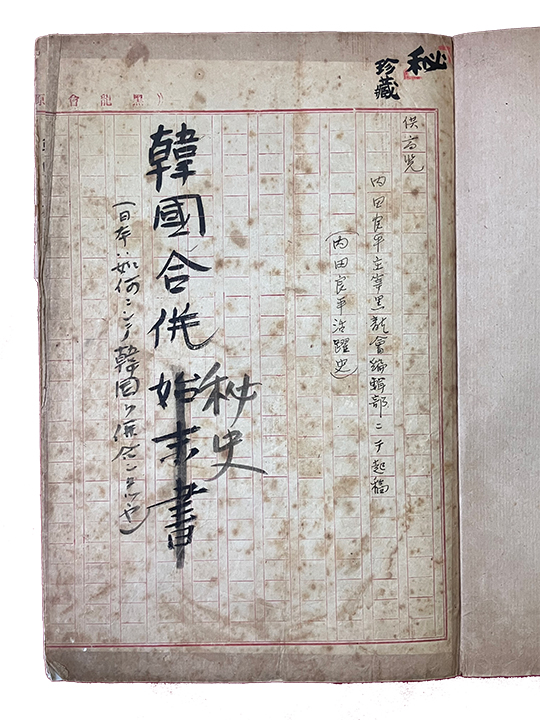 秘
珍藏
供高覧
内田良平主宰黒龍會編輯部ニテ起稿
(内田良平活躍史)
秘史
韓國合併始末書
(日本ハ如何ニシテ韓国ヲ併合シタルヤ)
黒龍會原